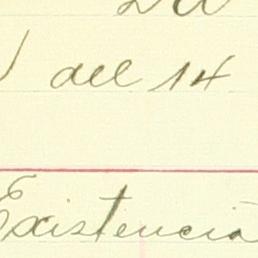 del 14
Existencia